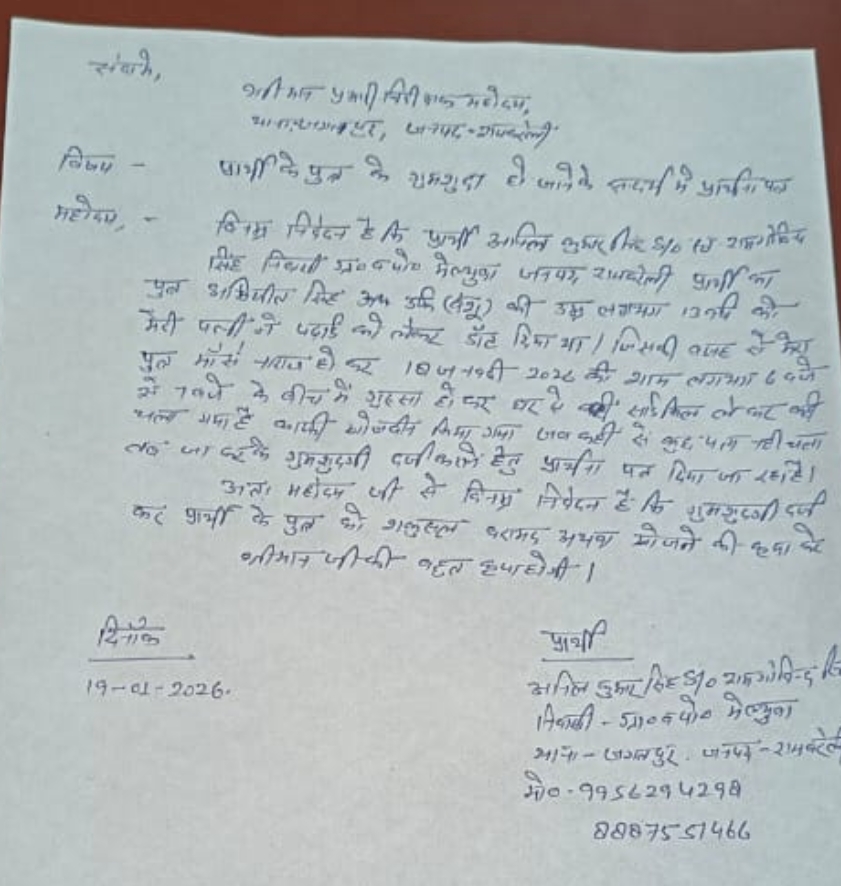 सेवामें,
श्रीमान प्रभारी निरीक्षक महोदय,
थाना-जगतपुर, जनपद-रायबरेली
विषय - प्रार्थी के पुत्र के गुमशुदा हो जाने के सन्दर्भ में प्रार्थना पत्र
महोदय, - विनम्र निवेदन है कि प्रार्थी अनिल कुमार सिंह S/o रामगोविन्द
सिंह निवासी ग्रा०व पो० जनपद रायबरेली प्रार्थी का
पुत्र सिंह उर्फ की उम्र लगभग 13 वर्ष को
मेरी पत्नी ने पढाई को लेकर डाँट दिया था। जिसकी वजह से मेरा
पुत्र माँ से नाराज हो कर 18 जनवरी 2026 की शाम लगभग 6 बजे
से 7 बजे के बीच में गुस्सा हो कर घर से साईकिल ले कर कही
चला गया है काफी खोजबीन किया गया जब कही से कुछ पता नही चला
तब जा करके गुमशुदगी दर्ज कराने हेतु प्रार्थना पत्र दिया जा रहा है।
अतः महोदय जी से विनम्र निवेदन है कि गुमशुदगी दर्ज
कर प्रार्थी के पुत्र को सकुशल बरामद अथवा खोजने की कृपा करे
श्रीमान जी की बहुत कृपा होगी।
दिनाँक
19-01-2026.
प्रार्थी
अनिल कुमार सिंह S/o रामगोविन्द
निवासी - ग्रा०व पो०
थाना - जगतपुर. जनपद - रायबरेली
मो० - 9956294298
8887551466